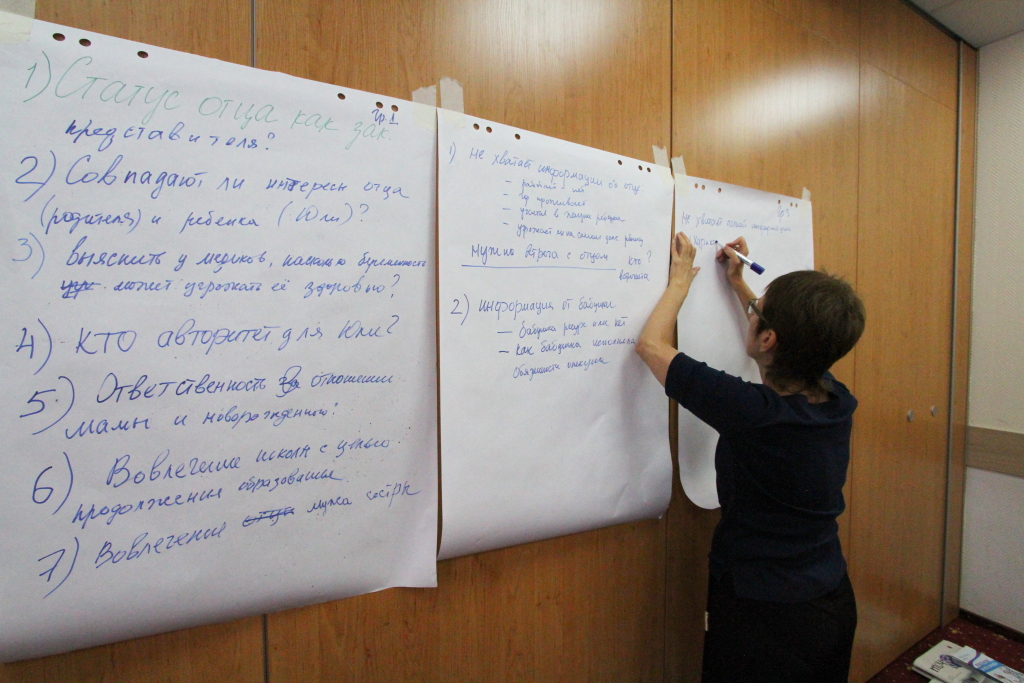 гр.1
1) Статус отца как зак.
представителя?
2) Совпадают ли интересы отца
(родителя) и ребенка (Юли)?
3) выяснить у медиков, насколько беременность
может угрожать её здоровью?
4) КТО авторитет для Юли?
5) Ответственность отношении
мамы и новорожденного?
6) Вовлечение школы с целью
продолжения образования
7) Вовлечение отца мужа сестры
1) Не хватает информации об отце
- работает
- где проживает
- участие в жизни
-
Нужна встреча с отцом Кто?
2) Информация от бабушки
- Бабушка ресурс или нет
- Как бабушка исполняла
Обязанности опекуна
гр3
Не хватает